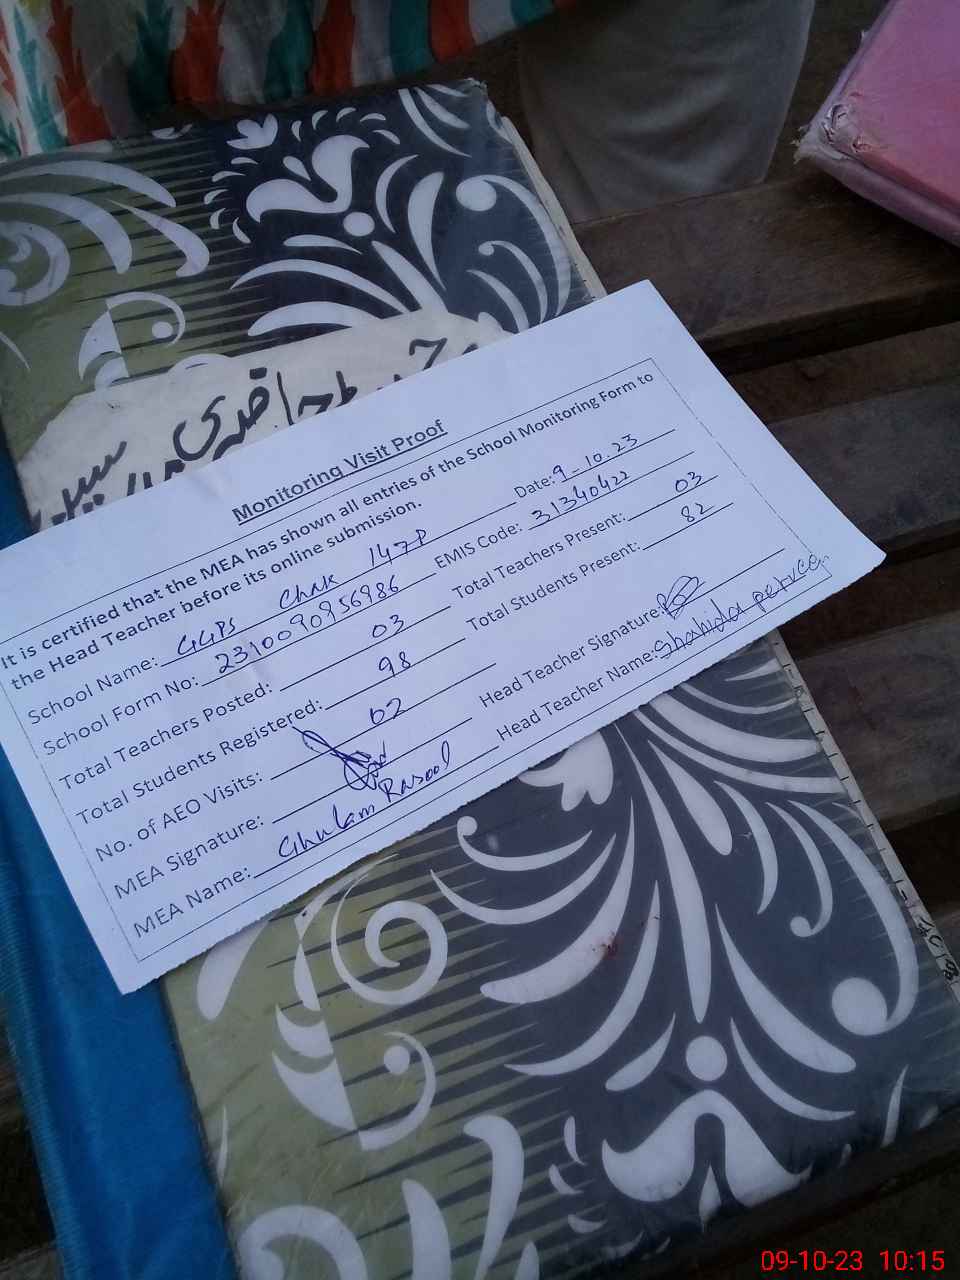 حاضری
Monitoring Visit Proof
It is certified that the MEA has shown all entries of the School Monitoring Form to
the Head Teacher before its online submission.
School Name: GGPS Chak 147P Date: 9-10.23
School Form No: 2310090956986 EMIS Code: 31340422
Total Teachers Posted: 03 Total Teachers Present: 03
Total Students Registered: 98 Total Students Present: 82
No. of AEO Visits: 02
MEA Signature: Head Teacher Signature:
MEA Name: Ghulam Rasool Head Teacher Name: Shahida perveen
09-10-23 10:15